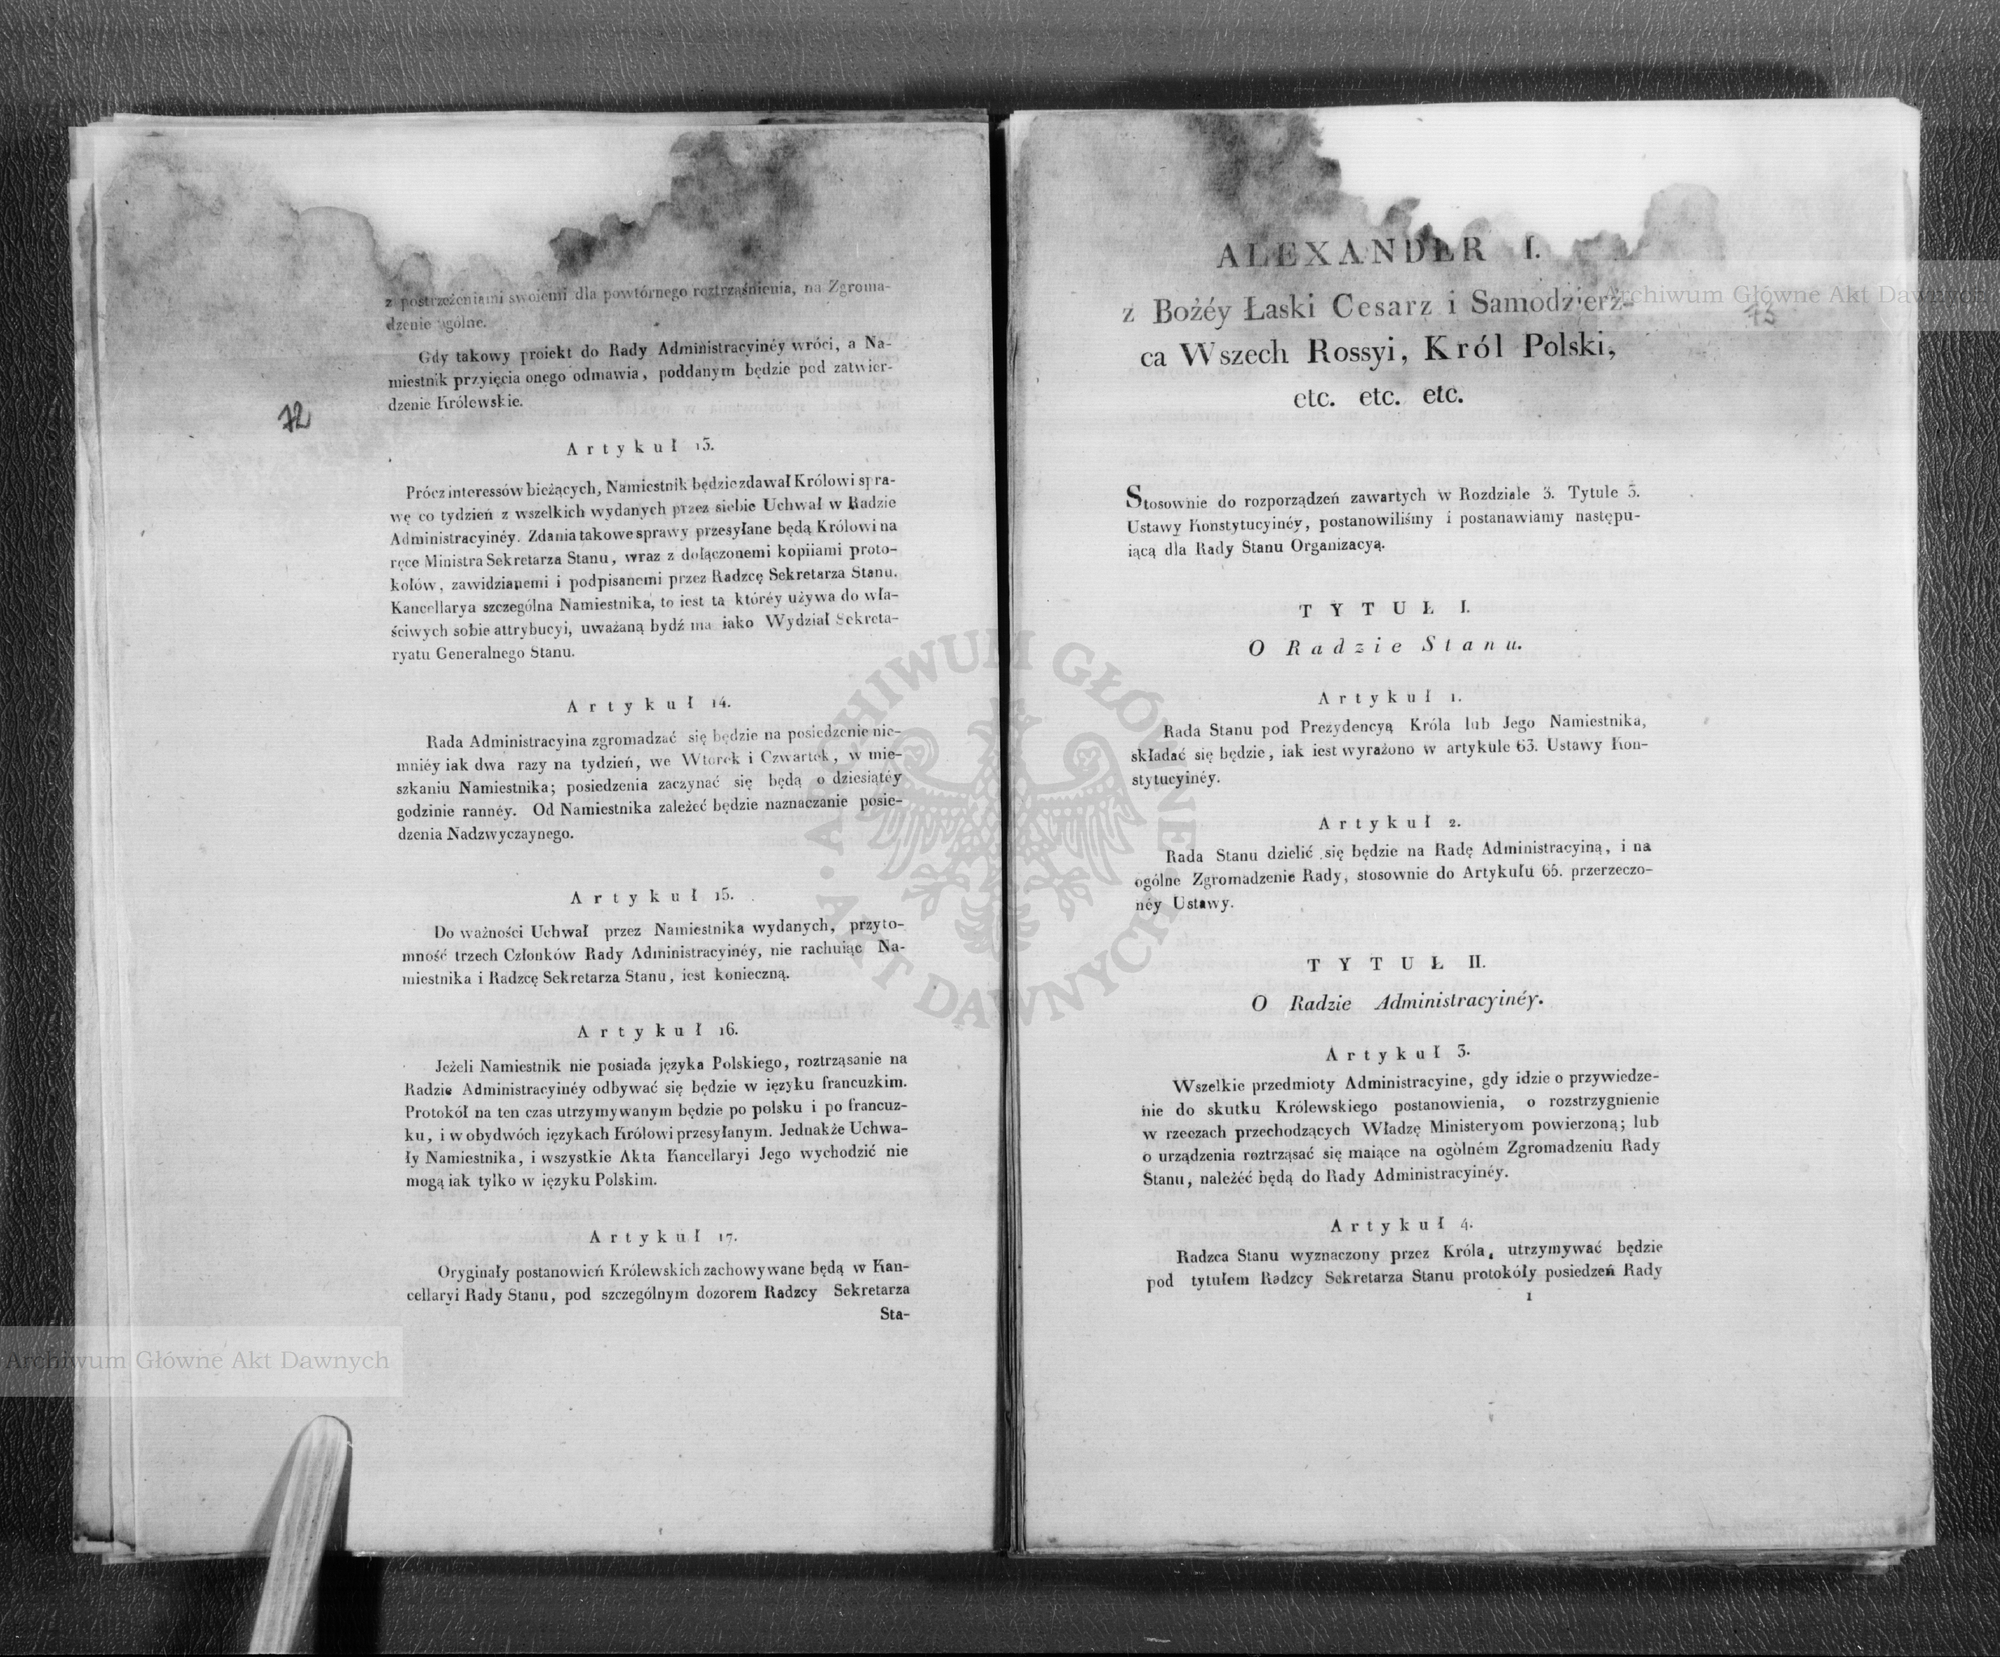 z postrzeżeniami swoiemi dla powtórnego roztrząśnienia, na Zgroma-
dzenie ogólne.
Gdy takowy proiekt do Rady Administracyinéy wróci, a Na-
miestnik przyięcia onego odmawia, poddanym będzie pod zatwier-
dzenie Królewskie.
72
Artykuł 13.
Prócz interessów bieżących, Namiestnik będzie zdawał Królowi spra-
wę co tydzień z wszelkich wydanych przez siebie Uchwał w Radzie
Administracyinéy. Zdania takowe sprawy przesyłane będą Królowi na
ręce Ministra Sekretarza Stanu, wraz z dołączonemi kopiiami proto-
kołów, zawidzianemi i podpisanemi przez Radzcę Sekretarza Stanu.
Kancellarya szczególna Namiestnika, to iest ta któréy używa do wła-
ściwych sobie attrybucyi, uważaną bydź ma iako Wydział Sekreta-
ryatu Generalnego Stanu.
Artykuł 14.
Rada Administracyina zgromadzać się będzie na posiedzenie nie-
mniéy iak dwa razy na tydzień, we Wtorek i Czwartek, w mie-
szkaniu Namiestnika; posiedzenia zaczynać się będą o dziesiątéy
godzinie rannéy. Od Namiestnika zależeć będzie naznaczanie posie-
dzenia Nadzwyczaynego.
Artykuł 15.
Do ważności Uchwał przez Namiestnika wydanych, przyto-
mność trzech Członków Rady Administracyinéy, nie rachuiąc Na-
miestnika i Radzcę Sekretarza Stanu, iest konieczną.
Artykuł 16.
Jeżeli Namiestnik nie posiada języka Polskiego, roztrząsanie na
Radzie Administracyinéy odbywać się będzie w ięzyku francuzkim.
Protokół na ten czas utrzymywanym będzie po polsku i po francuz-
ku, i w obydwóch ięzykach Królowi przesyłanym. Jednakże Uchwa-
ły Namiestnika, i wszystkie Akta Kancellaryi Jego wychodzić nie
mogą iak tylko w ięzyku Polskim.
Artykuł 17.
Oryginały postanowień Królewskich zachowywane będą w Kan-
cellaryi Rady Stanu, pod szczególnym dozorem Radzcy Sekretarza
Sta-
Archiwum Główne Akt Dawnych
ALEXANDER I.
z Bożéy Łaski Cesarz i Samodzierż-
ca Wszech Rossyi, Król Polski,
etc. etc. etc.
Archiwum Główne Akt Dawnych
73
Stosownie do rozporządzeń zawartych w Rozdziale 3. Tytule 3.
Ustawy Konstytucyinéy, postanowiliśmy i postanawiamy następu-
iącą dla Rady Stanu Organizacyą.
TYTUŁ I.
O Radzie Stanu.
Artykuł 1.
Rada Stanu pod Prezydencyą Króla lub Jego Namiestnika,
składać się będzie, iak iest wyrażono w artykule 63. Ustawy Kon-
stytucyinéy.
Artykuł 2.
Rada Stanu dzielić się będzie na Radę Administracyiną, i na
ogólne Zgromadzenie Rady, stosownie do Artykułu 65. przerzeczo-
néy Ustawy.
TYTUŁ II.
O Radzie Administracyinéy.
Artykuł 3.
Wszelkie przedmioty Administracyine, gdy idzie o przywiedze-
nie do skutku Królewskiego postanowienia, o rozstrzygnienie
w rzeczach przechodzących Władzę Ministeryom powierzoną; lub
o urządzenia roztrząsać się maiące na ogólném Zgromadzeniu Rady
Stanu, należéć będą do Rady Administracyinéy.
Artykuł 4.
Radzca Stanu wyznaczony przez Króla, utrzymywać będzie
pod tytułem Radzcy Sekretarza Stanu protokóły posiedzeń Rady
1
ARCHIWUM GŁÓWNE AKT DAWNYCH